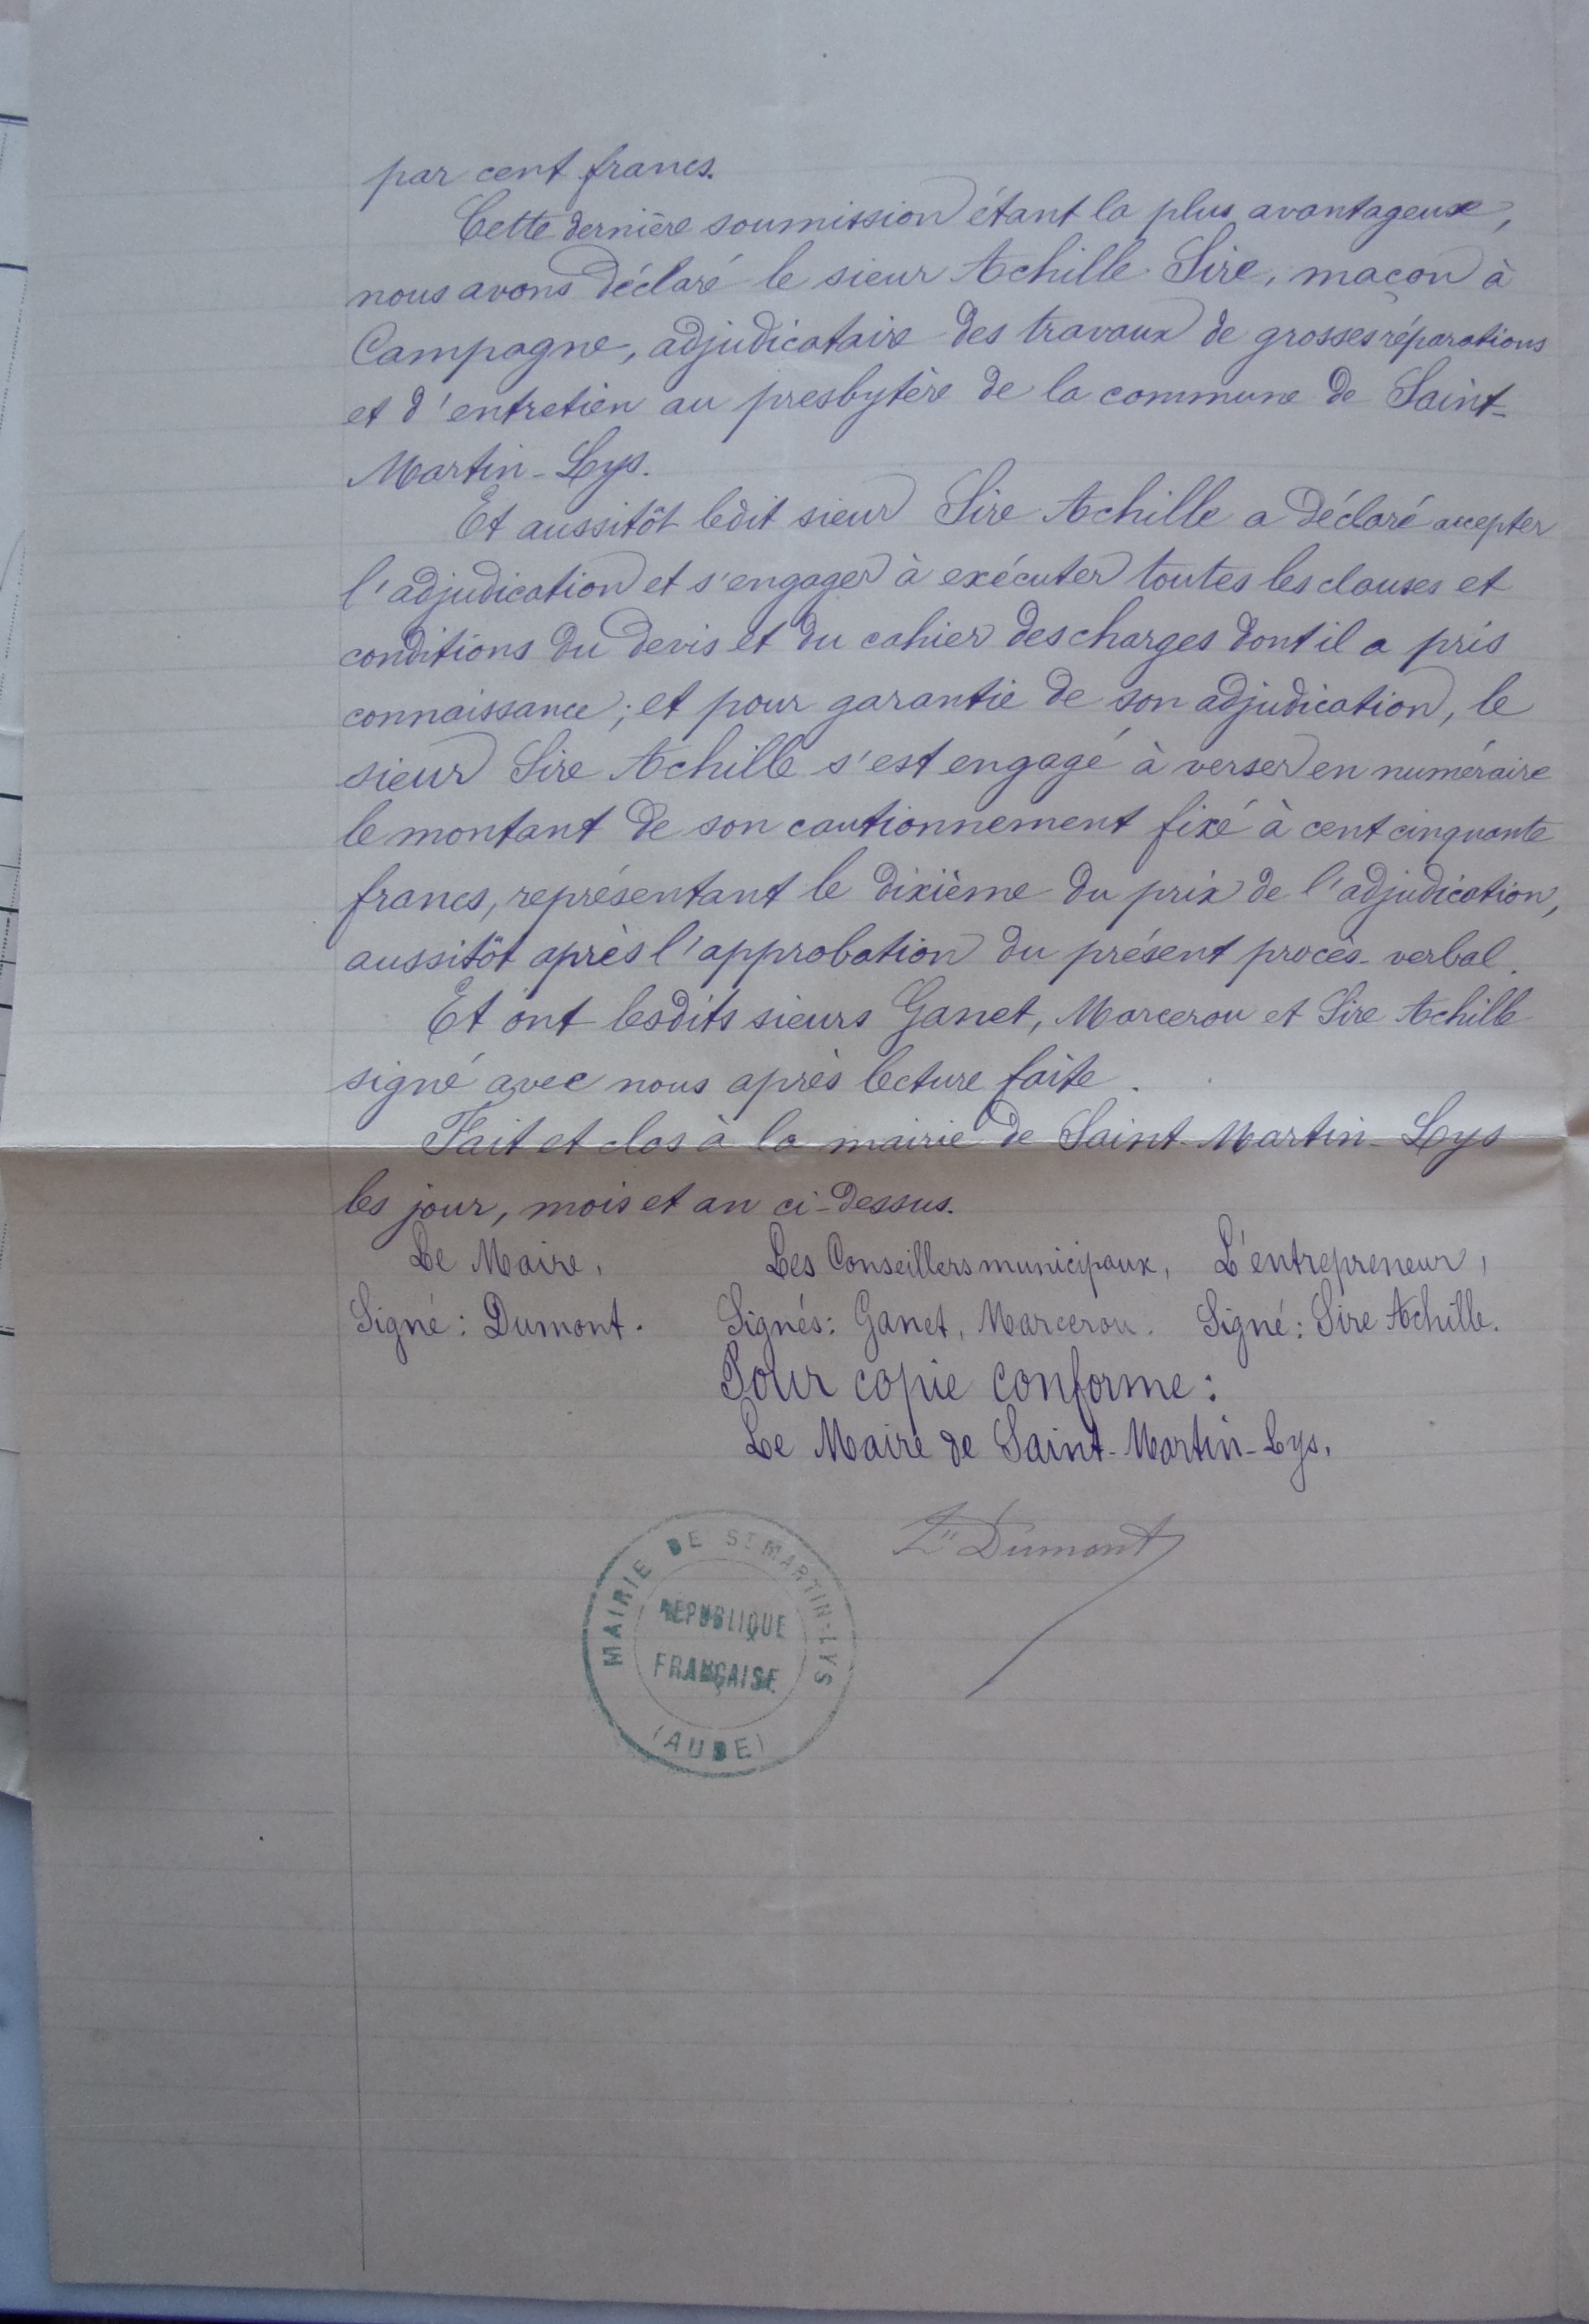 par cent francs.
Cette dernière soumission étant la plus avantageuse,
nous avons déclaré le sieur Achille Sire, maçon à
Campagne, adjudicataire des travaux de grosses réparations
et d'entretien au presbytère de la commune de Saint-
Martin-Lys.
Et aussitôt ledit sieur Sire Achille a déclaré accepter
l'adjudication et s'engager à exécuter toutes les clauses et
conditions du devis et du cahier des charges dont il a pris
connaissance; et pour garantie de son adjudication, le
sieur Sire Achille s'est engagé à verser en numéraire
le montant de son cautionnement fixé à cent cinquante
francs, représentant le dixième du prix de l'adjudication,
aussitôt après l'approbation du présent procès-verbal.
Et ont lesdits sieurs Ganet, Marcerou et Sire Achille
signé avec nous après lecture faite.
Fait et clos à la mairie de Saint-Martin-Lys
les jour, mois et an ci-dessus.
Le Maire, Les Conseillers municipaux, L'entrepreneur,
Signé: Dumont. Signés: Ganet, Marcerou. Signé: Sire Achille.
Pour copie conforme:
Le Maire de Saint-Martin-Lys,
Dumont
MAIRIE DE ST MARTIN-LYS
RÉPUBLIQUE
FRANÇAISE
(AUDE)